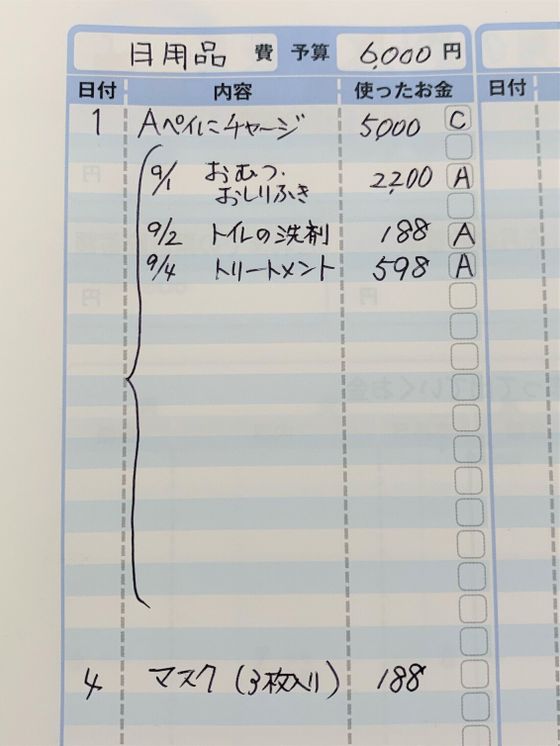 日用品 費 予算 6,000 円
日付 内容 使ったお金 日付
1 Aペイにチャージ 5,000 C
9/1 おむつ・ 2,200 A
おしりふき
9/2 トイレの洗剤 188 A
9/4 トリートメント 598 A
4 マスク(3枚入り) 188